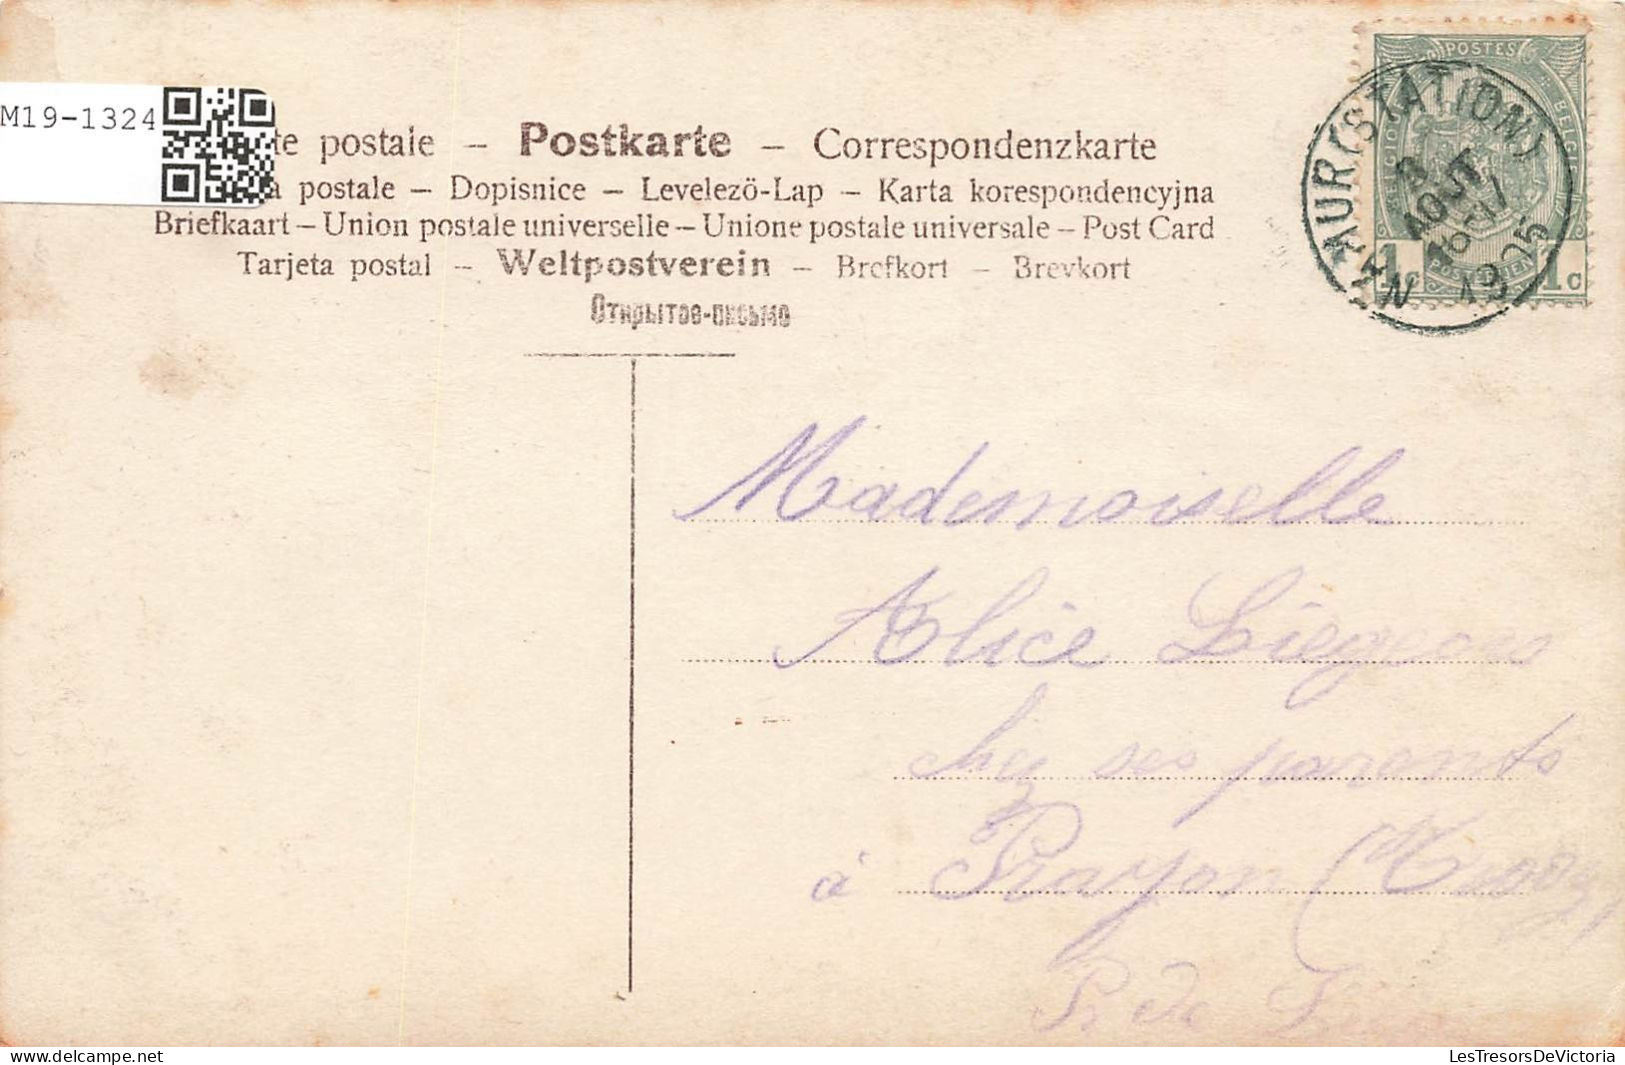 M19-1324
te postale – Postkarte – Correspondenzkarte
a postale – Dopisnice – Levelező-Lap – Karta korespondencyjna
Briefkaart – Union postale universelle – Unione postale universale – Post Card
Tarjeta postal – Weltpostverein – Brefkort – Brevkort
Открытое-письмо
POSTES
BELGIQUE
BELGIE
1c POSTERIJEN 1c
NAMUR (STATION)
3
AOUT
16-17
1905
Mademoiselle
Alice Liégeois
chez ses parents
à Prayon (Trooz)
Pr de
LesTresorsDeVictoria